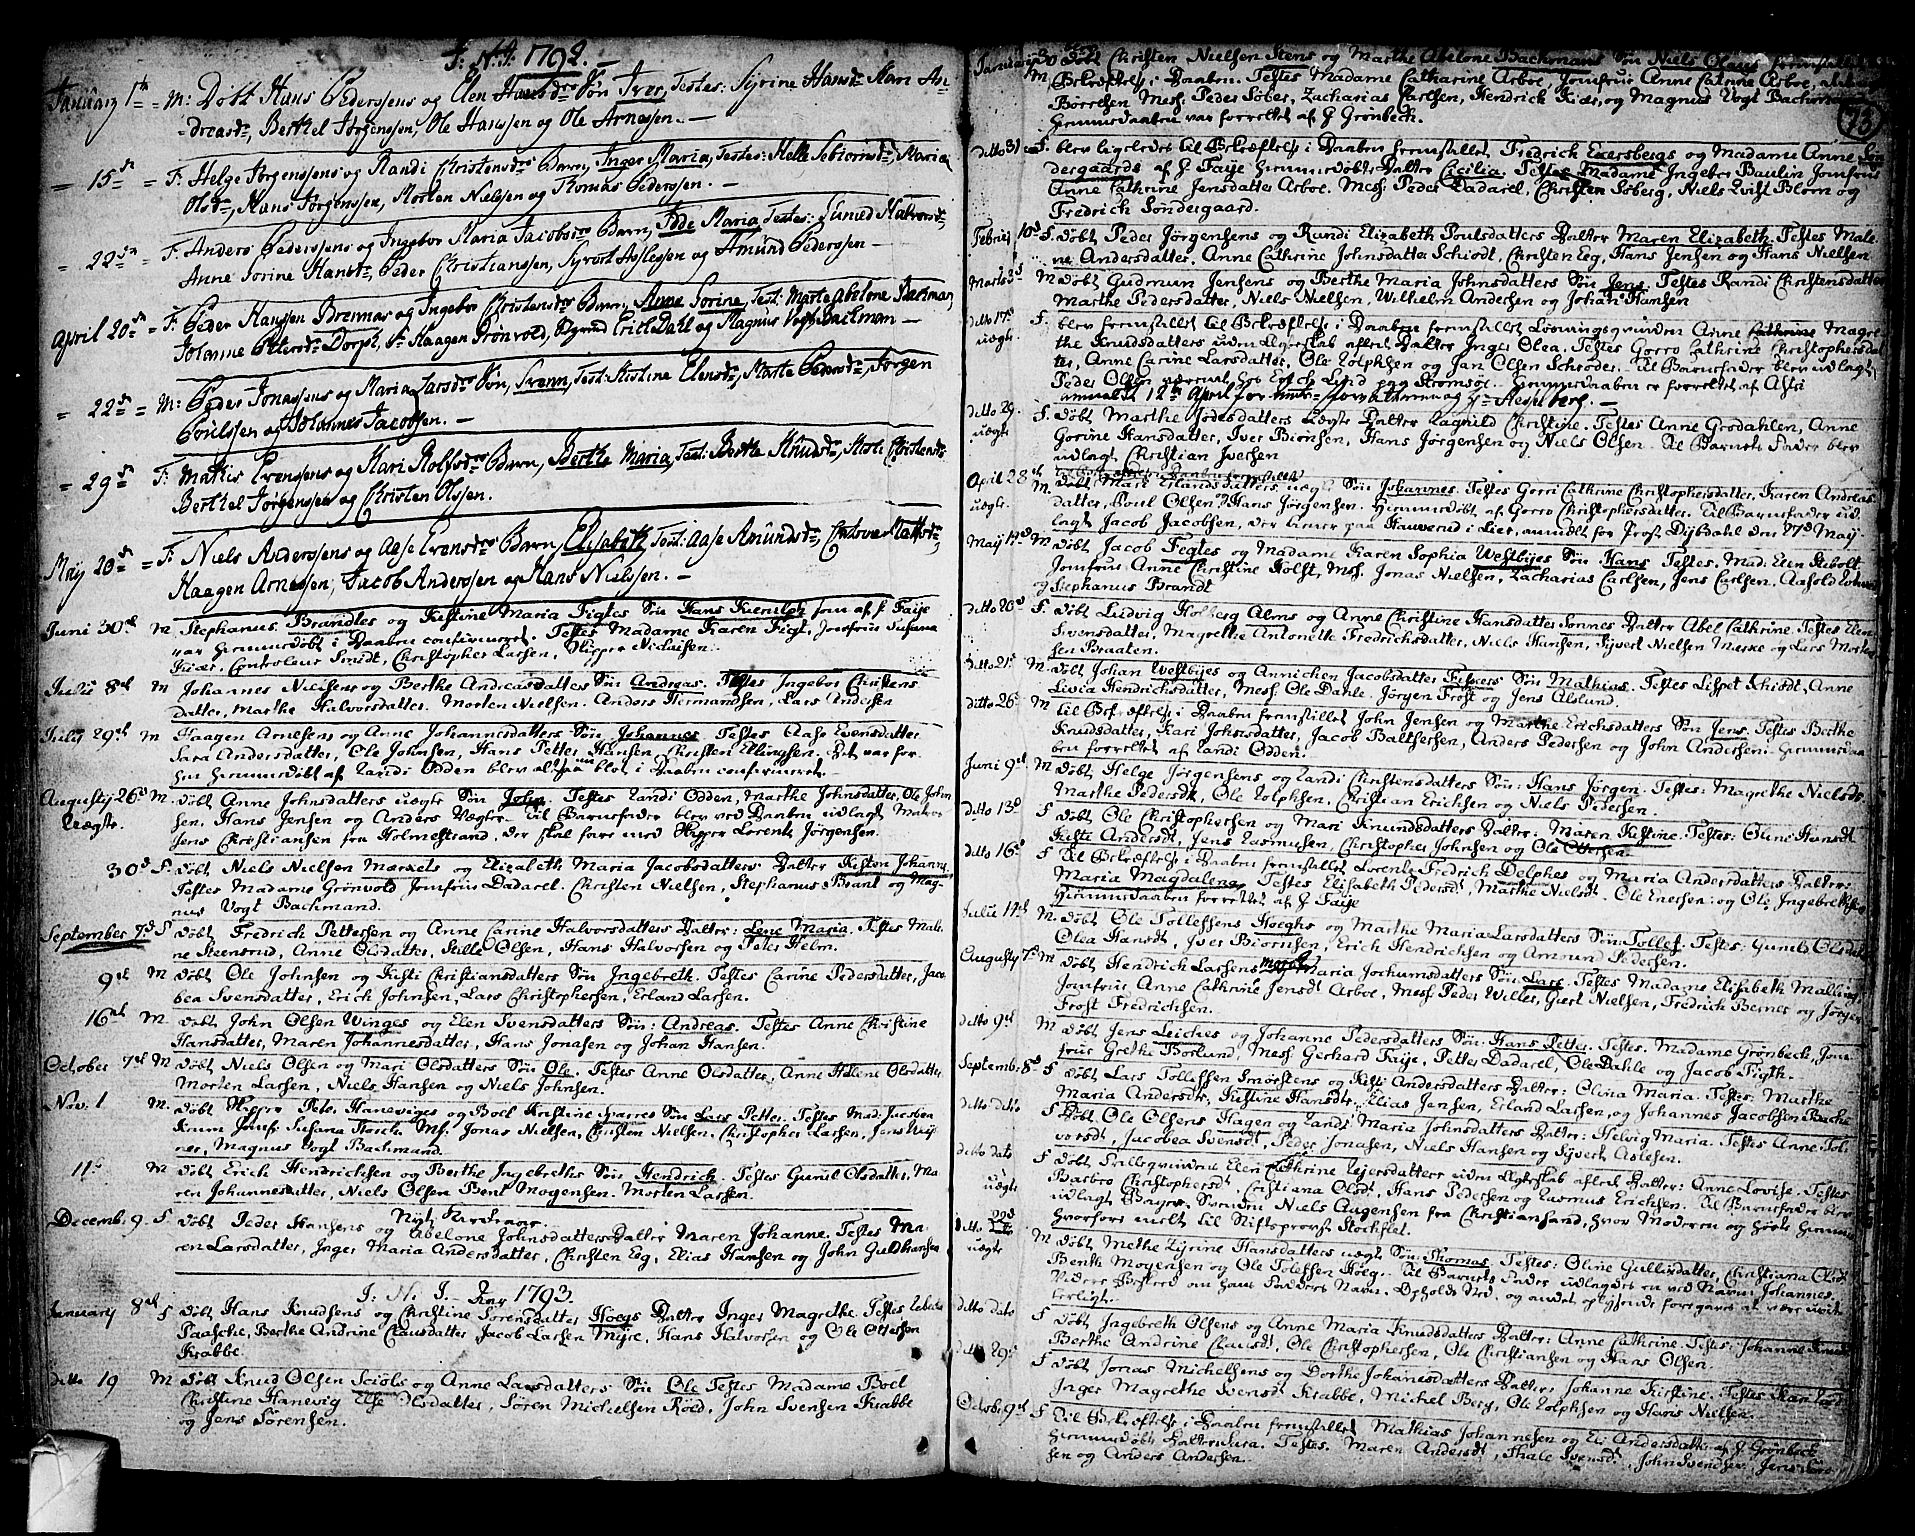 J: N: J: 1792. –
January 1te M: Döbt Hans Pedersens og Elen Hansdr Søn Iver, Testes: Syrine Hansdr Mari An-
dreasdr, Berthel Jørgenssen, Ole Hanssen og Ole Arnessen. –
15de F: Helge Jørgenssens og Randi Christensdr Barn, Inger Maria, Testes: Helle Maria
Olsdr, Hans Jørgenssen, Morten Nielssen og Thomas Pederssen. –
22de F: Anders Pederssens og Ingebor Maria Jacobsdr Barn, Maria Testes: Halvorsdr,
Anne Sorine Hansdr, Peder Christianssen, Syvert Asslessen og Amund Pederssen –
April 20de F: Peder Hanssen Brennas og Ingebor Christensdr Barn, Anne Sorine, Test: Marte Abelone Backman,
Johanne Dorph, Hr Haagen Grönvold, og Magnus Vogt Backman –
22de M: Peder Jonassens og Maria Larsdr Søn, Svenn, Test: Kistine Elensdr, Marte Jørgen
Poulssen og Johannes Jacobsen. –
29de F: Mathis Evenssens og Kari Rolfsdr Barn, Berthe Maria, Test: Berthe Knudsdr,
Berthel Jørgenssen og Christen Olssen.
May 20de F: Niels Anderssens og Aase Evensdr Barn, Elisabeth Test: Aase Amundsdr,
Haagen Arnessen, Jacob Anderssen og Hans Nielssen. –
Juni 30te M Stephanus Brandtes og Kistine Maria Figtes Søn Hans Kierulph som af J. Faije
var hiemmedöbt i Daaben confirmeret. Testes Madame Karen Figt, Jomfrue Susana
Kiær. Controleur Smidt, Christopher Larsen, Skipper Nielsen.
Julii 8de M Johannes Nielsens og Berthe Andreasdatters Søn Andreas. Testes Ingebor Christens
datter, Marthe Halvorsdatter. Morten Nielsen. Anders Hermandsen, Lars Andersen
July 29de M Haagen Arnesens og Anne Johannesdatters Søn Johannes Testes Aase Evensdatter.
Sara Andersdatter, Ole Johnsen, Hans Petter Hansen, Christen Ellingsen. Bet var for
hen hiemmedöbt af Randi Odden blev altsaa nu blot i Daaben confirmeret.
Augusty 26de M. döbt Anne Johnsdatters uægte Søn John. Testes Randi Odden, Marthe Johnsdatter, Ole John
Uægte. sen, Hans Jensen og Anders Vægter. Til Barnefader blev ved Daaben udlagt Matros
Jens Christiansen fra Holmestrand, der skal fare med Skipper Lorentz Jörgensen.
30d F. döbt Niels Nielsen Mørchels og Elizabeth Maria Jacobsdatters Datter Kisten Johanne
Testes Madame Grönvold Jomfrue Dadarel. Christen Nielsen, Stephanus Brant og Mag-
nus Vogt Bachmand.
September 7d F döbt Fredrich Pettersen og Anne Carine Halvorsdatters Datter: Lene Maria. Testes Male
ne Steensrud, Anne Olsdatter, Helle Olsen, Hans Halvorsen og Peter Helm.
9de M döbt Ole Johnsen og Kisti Christiansdatters Søn Ingebreth. Testes Carine Pedersdatter, Jac
bea Svensdatter, Erich Johnsen, Lars Christophersen, Erland Larsen.
16de M. döbt John Olsen Winges og Elen Svensdatters Søn: Andreas. Testes Anne Christine
Hansdatter, Maren Johannesdatter, Hans Jonasen og Johan Hansen.
October 7de M döbt Niels Olsen og Mari Olsdatters Søn Ole. Testes Anne Olsdatter, Anne Helene Olsdatter
Morten Larsen, Niels Hansen og Niels Johnsen.
Nov. 1 M. döbt Skipper Peter Haneviges og Boel Kristine Sparres Søn Lars Petter. Testes Mad: Jacobea
Krum Jomf. Susana Ms. Jonas Nielsen, Christen Nielsen. Christopher Larsen, Jens
ner, Magnus Vogt Bachmand.
11t M döbt Erich Hendrichsen og Berthe Ingebreths Søn Hendrich. Testes Gunil Olsdatter, Ma
ren Johannesdatter, Niels Olsen Bent Mogensen. Morten Larsen.
Decemb. 9. F döbt Peder Hansens og Abelone Johnsdatters Datter Maren Johanne. Testes Ma-
ren Larsdatter, Inger Maria Andersdatter, Christen Eeg, Elias Hansen og John Guldhansen
J: N: J. Anno 1793.
January 8de F döbt Hans Knudsens og Christine Sorensdatter Hoegs Datter Inger Magrethe. Testes Rebecha
Paasche, Berthe Andrine Clausdatter, Jacob Larsen Myre, Hans Halvorsen og Ole Ottersen
Krabbe.
ditto 19 M döbt Knud Olsen Sciöls og Anne Larsdatters Søn Ole Testes Madame Boel
Christine Hanevig Else Olsdatter, Søren Michelsen Röed, John Svensen Krabbe
og Jens Sørensen.
73
January 30 döbt Christen Nielsen Stens og Marthe Abelone Bachmans Søn Niels
M Bekræftelse i Daaben. Testes Madame Catharine Arboe, Jomfrue Anne Catrine Arboe,
Börresen Mess. Peder Söber, Zacharias Carlsen, Hendrick Kiær, og Magnus Vogt Bachman
Hiemmedaaben var forrettet af J Grönbeck.
ditto 31 F. blev ligeledes til Bekræftelse i Daaben fremstillet Fredrich Exersbergs og Madame Anne Søn
dergaards af J. Faije hiemmedöbte Datter Cicilia. Testes Madame Ingebor Paulin Jomfrue
Anne Cathrine Jensdatter Arboe. Mess. Peder Dadarel, Christen Söberg, Niels Qvist Blom og
Fredrich Søndergaard.
Februarj 10d F. döbt Peder Jörgensens og Rundi Elizabeth Poulsdatters Datter Maren Elizabeth. Testes Male
ne Andersdatter. Anne Cathrine Johnsdatter Schiödt, Christen Eeg, Hans Jensen og Hans Nielsen
Martz 3d M döbt Gudmun Jensens og Berthe Maria Johnsdatters Søn Jens Testes Randi Christensdatter
Marthe Pedersdatter, Niels Nielsen, Wilhelm Andersen og Johan Hansen
ditto 17d F. blev fremstillet til Bekræftelse i Daaben Anne Cathrine Magre
uægte. the Knudsdatters uden Ægteskab aflede Datter Inger Olea. Testes Gorro Cathrine Christophersdat
ter, Anne Carine Larsdatter, Ole Rolphsen og Jan Olsen Schröder. Til Barnefader blev udlagt
Peder Olsen paa Strömsöe. Hiemmedaaben er forrettet af Asti
anmeldt 12te April for
ditto 29. F. döbt Marthe Jodesdatters uægte Datter Ragnild Christine. Testes Anne Grodahlen, Anne
uægte Gorine Hansdatter, Iver Biönsen, Hans Jörgensen og Niels Olsen. Til Barnets Fader blev
udlagt, Christian Iversen
April 28de döbt Mari Erlandsdatters uægte Søn Johannes. Testes Gorri Cathrine Christophersdatter, Karen Andreas
uægte. M datter, Poul Olsen og Hans Jörgensen. Hiemmedöbt af Gorro Christophersdatter. Til Barnefader ud
lagt Jacob Jacobsen, der tiener paa Hauverud i Lier, anmeldt for Prost Dybdahl den 27d Maij.
Maij 17d M döbt Jacob Fegtes og Madame Karen Sophia Westbijes Søn Hans Testes. Mad. Elen Stibolt
Jomfrue Anne Christine Holst, Mess. Jonas Nielsen, Zacharias Carlsen, Jens Carlsen. Aasold
og Stephanus Brandt
ditto 20d F. döbt Ludvig Holberg Alms og Anne Christine Hansdatter Sonnes Datter Abel Cathrine. Testes Elen
Svensdatter, Magrethe Antonette Fredrichsdatter, Niels Hansen, Syvert Nielsen Merke og Lars Morten
sen Braaten.
ditto 21d M. döbt Johan Westbijes og Annichen Jacobsdatter Fischers Søn Mathias. Testes Lispet Schiödt, Anne
Livia Hendrichsdatter, Mess. Ole Dahle. Jörgen Frost og Jens Aslund.
ditto 26d M til Bekræftelse i Daaben fremstillet John Jensen og Marthe Erichsdatters Søn Jens. Testes Berthe
Knudsdatter, Kari Johnsdatter, Jacob Balthersen, Anders Pedersen og John Andersen. Hiemmedaa
ben forrettet af Randi Odden.
Juni 9de M döbt Helge Jörgensens og Randi Christensdatters Søn: Hans Jörgen. Testes: Magrethe Nielsdr
Marthe Pedersdr, Ole Rolphsen. Christian Erichsen og Niels Pedersen.
ditto 13d F döbt Ole Christophersen og Mari Knudsdatters Datter: Maren Kistine. Testes: Oline Hansdr
Kisti Andersdr, Jens Rasmusen, Christopher Johnsen og Ole Ottersen.
ditto 16d F Til Bekræftelse i Daaben fremstillet Lorentz Fredrich Delphes og Maria Andersdatters Datter:
Maria Magdalena, Testes Elisabeth Pedersdr Marthe Nielsdr. Ole Enersen: og Ole Ingebrethsen
Hiemmedaaben forrettet af J Faije
Julii 14de M. döbt Ole Tollefsens Hoeghs og Marthe Maria Larsdatters Søn: Tollef. Testes: Gunild Olsdatter
Olea Hansdr, Iver Biörnsen, Erich Hendrichsen og Amound Pedersen.
Augusty 7d M döbt Hendrich Larsens og Maria Jochumsdatters Søn: Lars. Testes Madame Elisabeth Malling
Jomfrue Anne Cathrine Jensdr Arboe, Mess. Peder Willer, Giert Nielsen, Fredrich Berner og Jörgen
Frost Fredrichsen.
ditto 9de M döbt Jens Leiches og Johanne Pedersdatters Søn Hans Petter. Testes. Madame Grönbech, Jom-
frue Grethe Borlund, Mess. Gerhard Faije, Petter Dadarel, Ole Dahle og Jacob Figth.
Septemb. 8d F döbt Lars Tollefsen Smörstens og Kisti Andersdatters Datter: Olina Maria. Testes: Marthe
Maria Andersdr. Kistine Hansdr, Elias Jensen, Erland Larsen, og Johannes Jacobsen Bache
ditto ditto F döbt Ole Olsens Hagen og Rands Maria Johnsdatters Datter: Helvig Maria. Testes Anne Tol
versdr, Jacobea Svensdr Peder Jonasen, Niels Hansen og Syvert Aslesen.
ditto dato F döbt Elen Cathrine Rejersdatters uden Ægteskab aflede Datter: Anne Lovise. Testes
uægte Barbro Christophersdr, Cristiana Olsdr, Hans Pedersen og Rasmus Erichsen. Til Barnefader blev
udlagt Bager Svenden Niels Augensen fra Christiansand, hvor Moderen og
hvorfore meldt til Stiftsprovst Stockflet.
ditto 22d M döbt Methe Zyrine Hansdatters uægte Søn: Thomas Testes: Oline Gulliksdatter, Christiana Olsdr
uægte Benth Mogensen og Ole Tolefsen Hoeg. Til Barnets Fader udlagdes en ved Navn Johannes.
Videre Beskeed om hans Faders Navn, Opholds Sted, og andet
ditto dato F döbt Ingebreth Olsens og Anne Maria Knudsdatters Datter: Anne Cathrine. Testes: Johanne Knudsdr
Berthe Andrine Clausdr, Ole Christophersen, Ole Christiansen og Hans Olsen.
ditto 29d F döbt Jonas Michelsens og Dorthe Johanesdatters Datter: Johanne Kirstine. Testes
Inger Magrethe Svensdr Krabbe, Michel Berg, Ole Rolphsen og Hans Nielsen.
October 9de F til Bekræftelse i Daaben fremstillet Mathias Johannesen og Eli Andersdatter af J. Grönbeck
hiemmedöbte Datter: Sara. Testes. Maren Andersdr, Thale Svensdr, John Svendsen, Jens
sen og Anders Andersen.